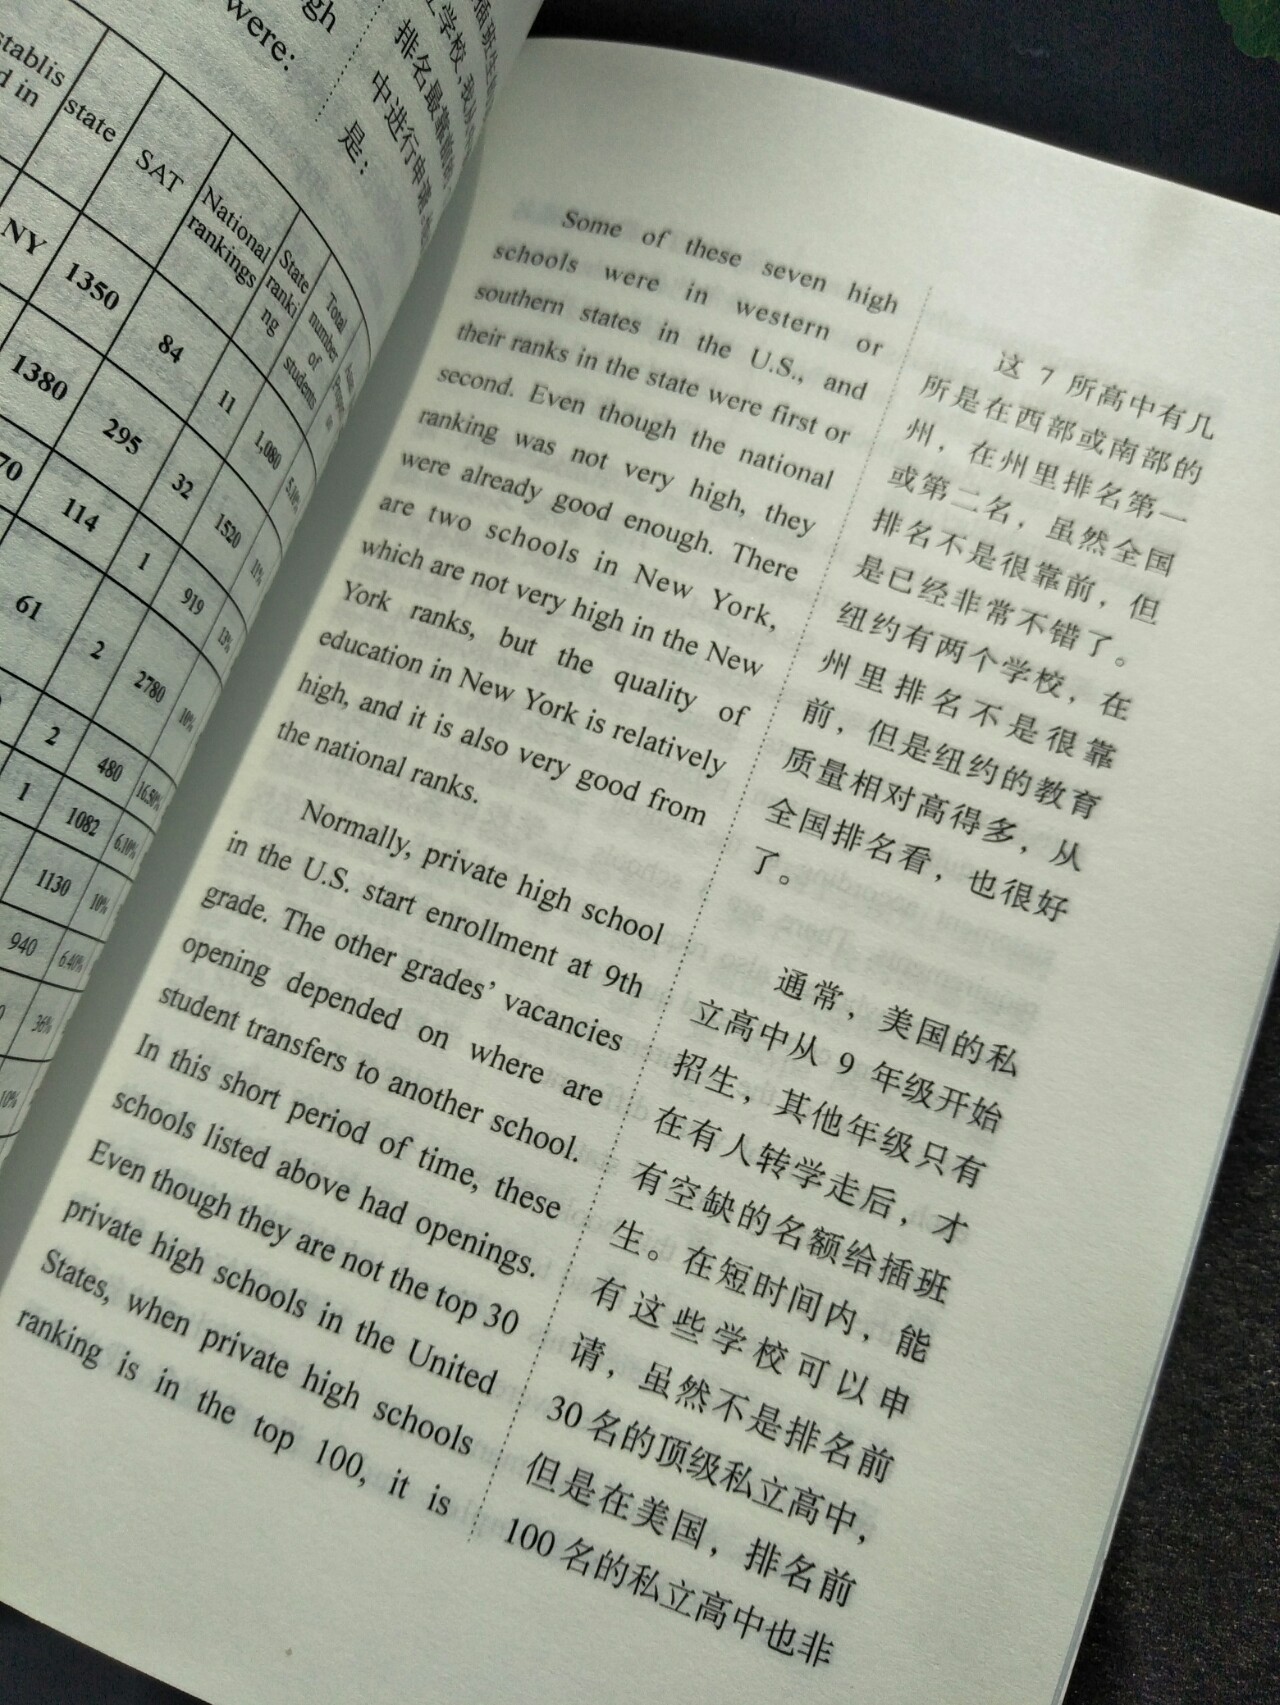 gh
were:
是：
排名最靠前的
中进行申请,
establis
d in
state
SAT
National
rankings
State
ranki
ng
Total
number
of
students
NY
1350
84
11
1,080
5.10%
1380
295
32
1520
11%
70
114
1
919
13%
61
2
2780
10%
2
480
16.50%
1
1082
6.10%
1130
10%
940
6.40%
36%
10%
Some of these seven high
schools were in western or
southern states in the U.S., and
their ranks in the state were first or
second. Even though the national
ranking was not very high, they
were already good enough. There
are two schools in New York,
which are not very high in the New
York ranks, but the quality of
education in New York is relatively
high, and it is also very good from
the national ranks.
Normally, private high school
in the U.S. start enrollment at 9th
grade. The other grades’ vacancies
opening depended on where are
student transfers to another school.
In this short period of time, these
schools listed above had openings.
Even though they are not the top 30
private high schools in the United
States, when private high schools
ranking is in the top 100, it is
这 7 所高中有几
所是在西部或南部的
州，在州里排名第一
或第二名，虽然全国
排名不是很靠前，但
是已经非常不错了。
纽约有两个学校，在
州里排名不是很靠
前，但是纽约的教育
质量相对高得多，从
全国排名看，也很好
了。
通常，美国的私
立高中从 9 年级开始
招生，其他年级只有
在有人转学走后，才
有空缺的名额给插班
生。在短时间内，能
有这些学校可以申
请，虽然不是排名前
30 名的顶级私立高中，
但是在美国，排名前
100 名的私立高中也非